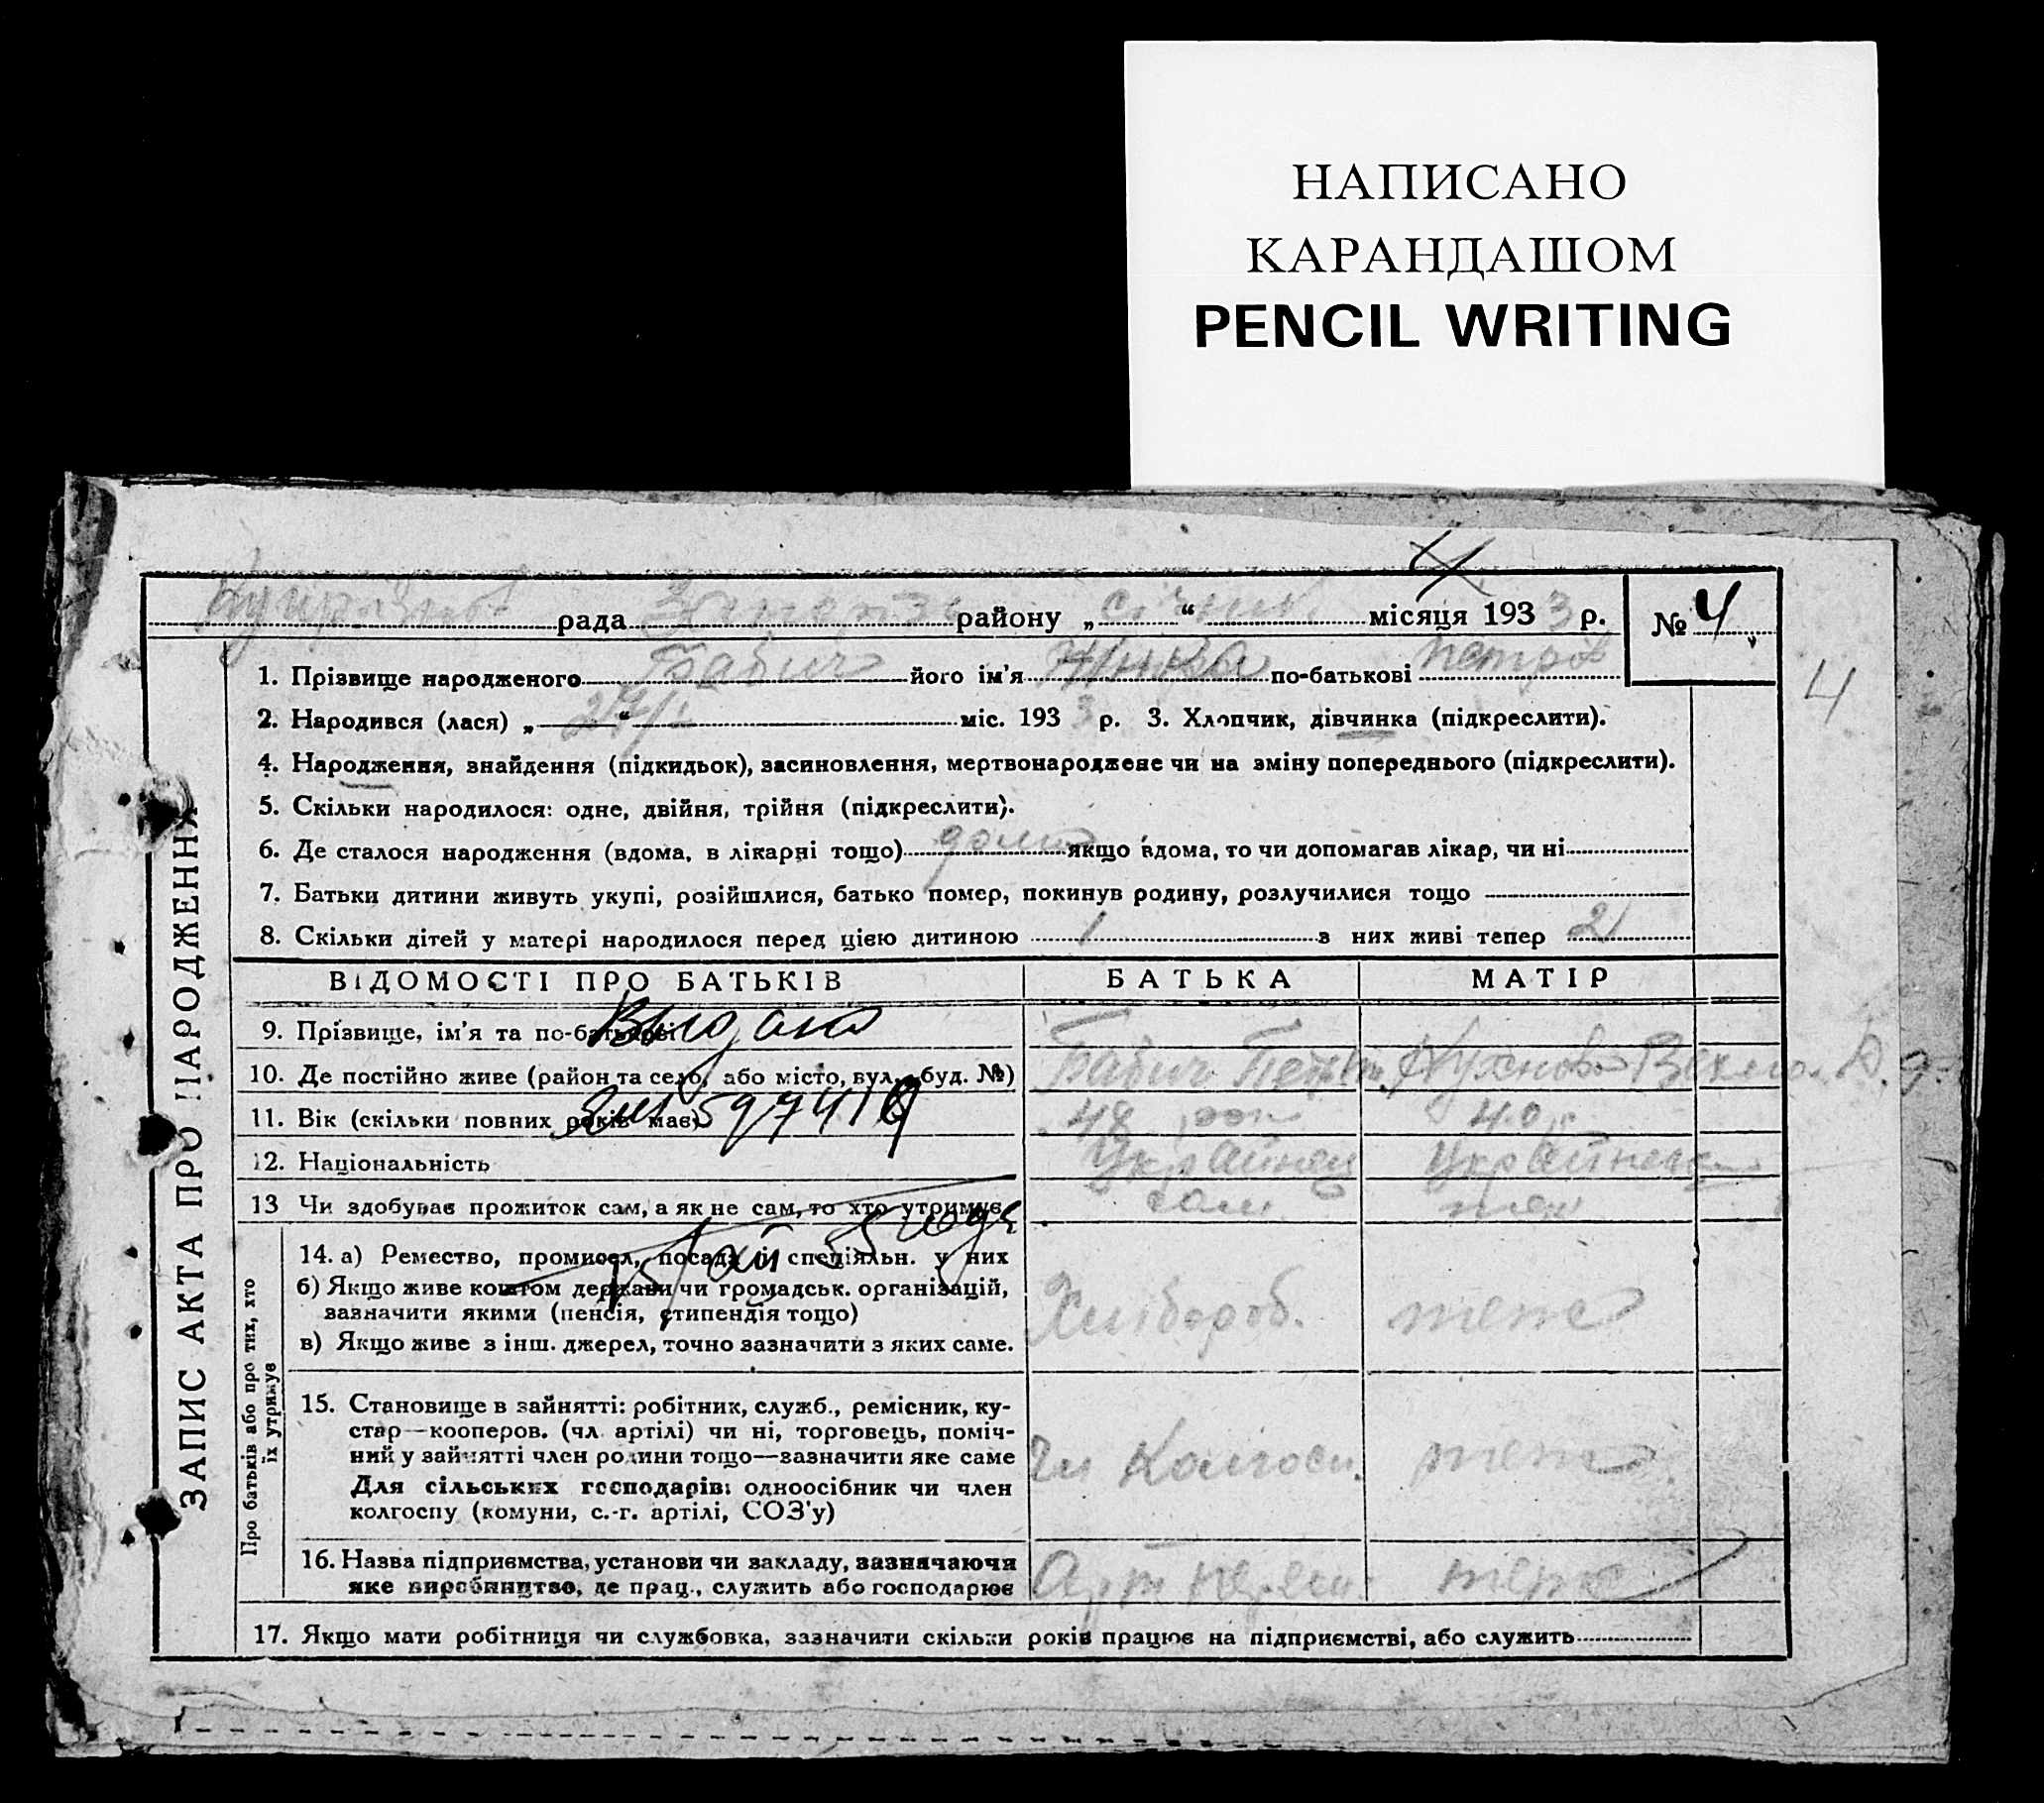 НАПИСАНО
КАРАНДАШОМ
PENCIL WRITING
рада району „ січня “ місяця 1933 р. № 4
4
1. Прізвище народженого Бабич його ім'я по-батькові Петров
2. Народився (лася) „ 27/I “ міс. 1933 р. 3. Хлопчик, дівчинка (підкреслити).
4. Народження, знайдення (підкидьок), засиновлення, мертвонароджене чи на зміну попереднього (підкреслити).
5. Скільки народилося: одне, двійня, трійня (підкреслити).
6. Де сталося народження (вдома, в лікарні тощо) дома якщо вдома, то чи допомагав лікар, чи ні
7. Батьки дитини живуть укупі, розійшлися, батько помер, покинув родину, розлучилися тощо
8. Скільки дітей у матері народилося перед цією дитиною 1 з них живі тепер 2
ВІДОМОСТІ ПРО БАТЬКІВ БАТЬКА МАТІР
9. Прізвище, ім'я та по-батькові Выдано
10. Де постійно живе (район та село, або місто, вул., буд. №) Бабич
11. Вік (скільки повних років має) 597419 48 40
12. Національність Украйнец Украйнська
13 Чи здобуває прожиток сам, а як не сам, то хто утримує сам
Май 55 года
14. а) Ремество, промисел, посада і спеціяльн. у них
б) Якщо живе коштом держави чи громадськ. організацій,
зазначити якими (пенсія, стипендія тощо) Хлібороб. теже
в) Якщо живе з інш. джерел, точно зазначити з яких саме.
15. Становище в зайнятті: робітник, служб., ремісник, ку-
стар—кооперов. (чл. артілі) чи ні, торговець, поміч-
ний у зайнятті член родини тощо—зазначити яке саме чл Колгосп. теже
Для сільських господарів: одноосібник чи член
колгоспу (комуни, с.-г. артілі, СОЗ'у)
16. Назва підприємства, установи чи закладу, зазначаючи
яке виробництво, де прац., служить або господарює Арт теже
17. Якщо мати робітниця чи службовка, зазначити скільки років працює на підприємстві, або служить
ЗАПИС АКТА ПРО НАРОДЖЕННЯ
Про батьків або про тих, хто
їх утримує